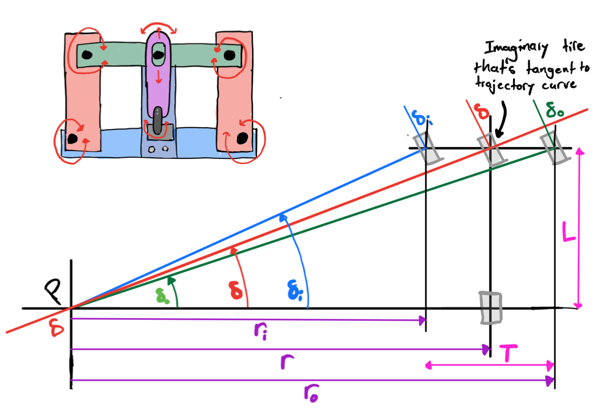 Imaginary tire
that's tangent to
trajectory curve
δi
δ
δo
L
P
δo
δ
δi
δ
ri
r
T
ro